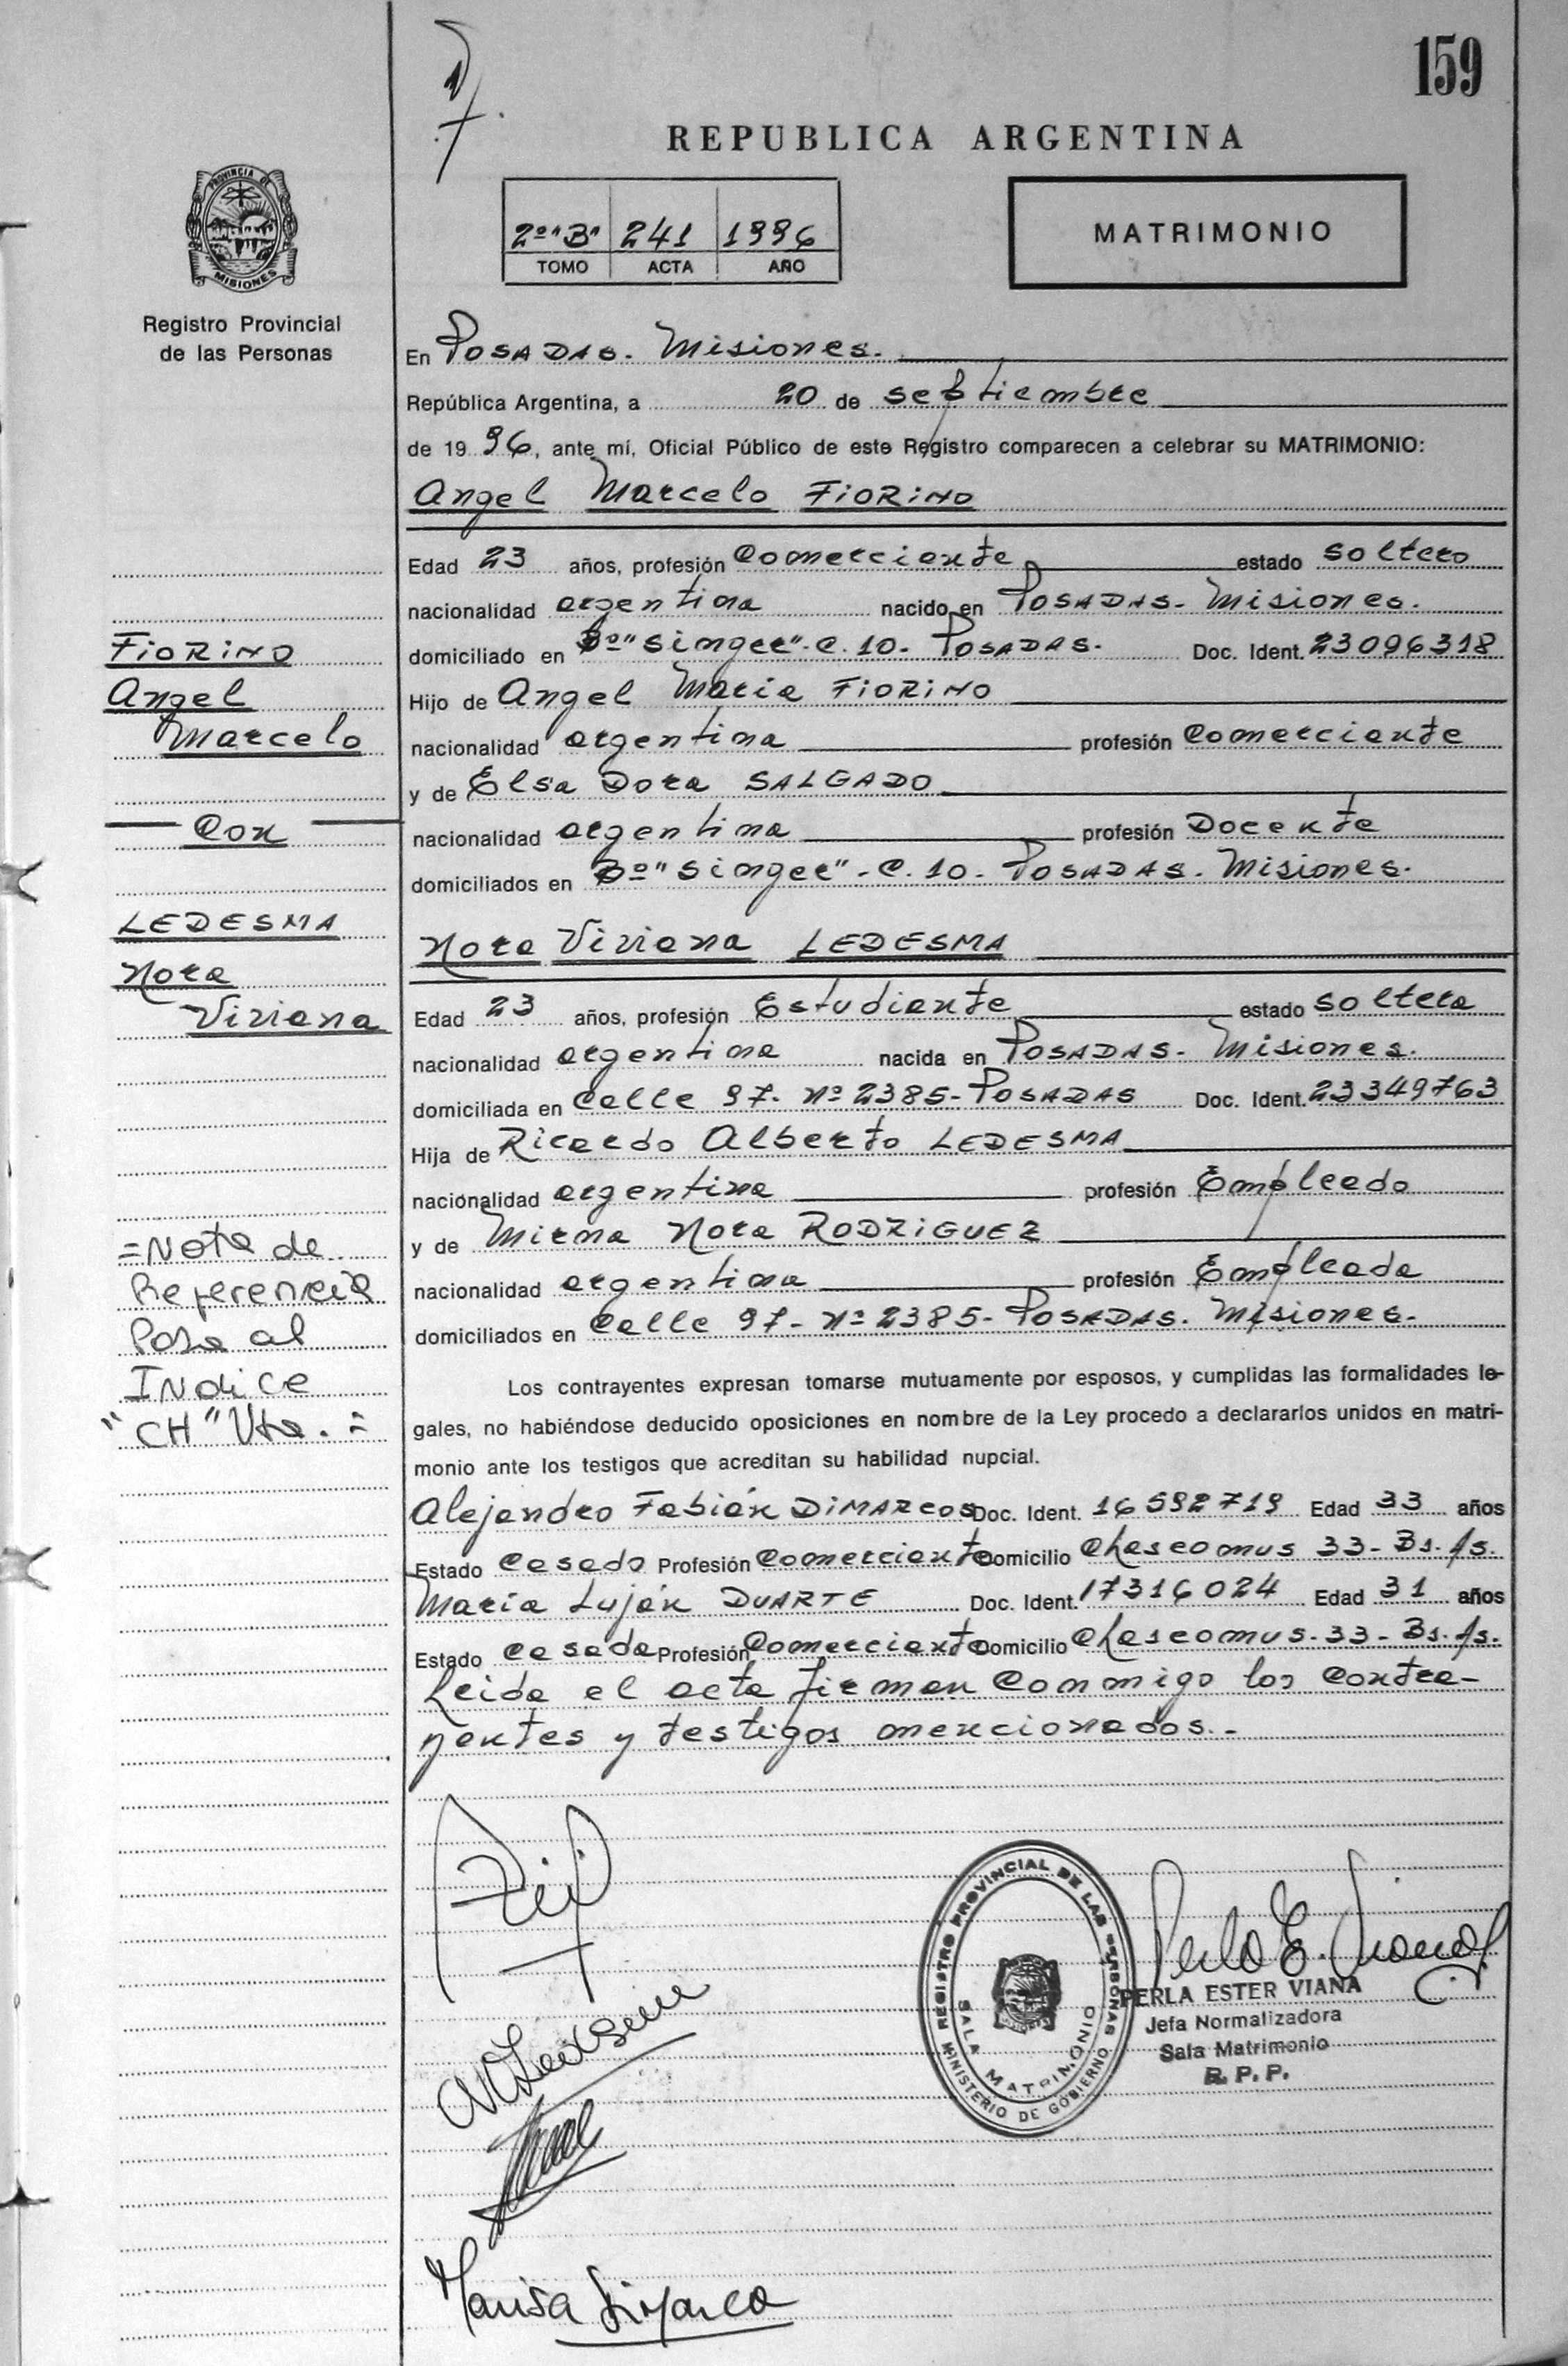 159
REPUBLICA ARGENTINA
2º "B" 241 1996
TOMO ACTA AÑO
MATRIMONIO
PROVINCIA DE MISIONES
Registro Provincial
de las Personas
En Posadas. Misiones.
República Argentina, a 20 de septiembre
de 1996, ante mí, Oficial Público de este Registro comparecen a celebrar su MATRIMONIO:
Angel Marcelo FiORiNO
Edad 23 años, profesión Comerciante estado soltero
nacionalidad argentina nacido en Posadas- Misiones.
domiciliado en Bº "Singer"-C.10- Posadas. Doc. Ident. 23096318
Hijo de Angel Maria FiORiNO
nacionalidad argentina profesión Comerciante
y de Elsa Dora SALGADO
nacionalidad argentina profesión Docente
domiciliados en Bº "Singer"-C.10- Posadas. Misiones.
Nora Viviana LEDESMA
Edad 23 años, profesión Estudiante estado soltera
nacionalidad argentina nacida en Posadas- Misiones.
domiciliada en Calle 97- Nº 2385- Posadas Doc. Ident. 23349763
Hija de Ricardo Alberto LEDESMA
nacionalidad argentina profesión Empleado
y de Mirna Nora RODRiGUEZ
nacionalidad argentina profesión Empleada
domiciliados en Calle 97- Nº 2385- Posadas. Misiones.
Los contrayentes expresan tomarse mutuamente por esposos, y cumplidas las formalidades le-
gales, no habiéndose deducido oposiciones en nombre de la Ley procedo a declararlos unidos en matri-
monio ante los testigos que acreditan su habilidad nupcial.
Alejandro Fabián DiMARCOS Doc. Ident. 16592719 Edad 33 años
Estado Casado Profesión Comerciante Domicilio Chascomus 33- Bs. As.
Maria Luján DUARTE Doc. Ident. 17316024 Edad 31 años
Estado Casada Profesión Comerciante Domicilio Chascomus-33- Bs. As.
Leida el acta firman conmigo los contra-
yentes y testigos mencionados.-
FiORiNO
Angel
Marcelo
Con
LEDESMA
Nora
Viviana
=Nota de
Referencia
Pasa al
INdice
"CH" Vta.=
REGISTRO PROVINCIAL DE LAS PERSONAS
SALA MATRIMONIO
MINISTERIO DE GOBIERNO
Perla E. Viana
PERLA ESTER VIANA
Jefa Normalizadora
Sala Matrimonio
R. P. P.